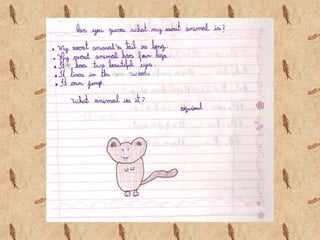 Can you guess what my secret animal is?
• My secret animal's tail is long.
• My secret animal has four legs.
• It has two beautiful eyes.
• It lives in the woods.
• It can jump.
What animal is it?
squirrel